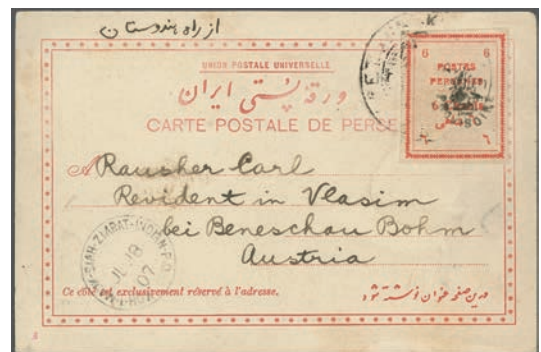 از راه هندوستان
UNION POSTALE UNIVERSELLE
ورقه پستی ایران
CARTE POSTALE DE PERSE
6 6
POSTES
PERSANES
٦
A Rausher Carl
Revident in Vlasim
bei Beneschau Bohm
Austria
ZIARAT-INDIAN-P.O.
JL 18
07
Ce côté est exclusivement réservé à l'adresse.
درین صفحه عنوان نوشته شود